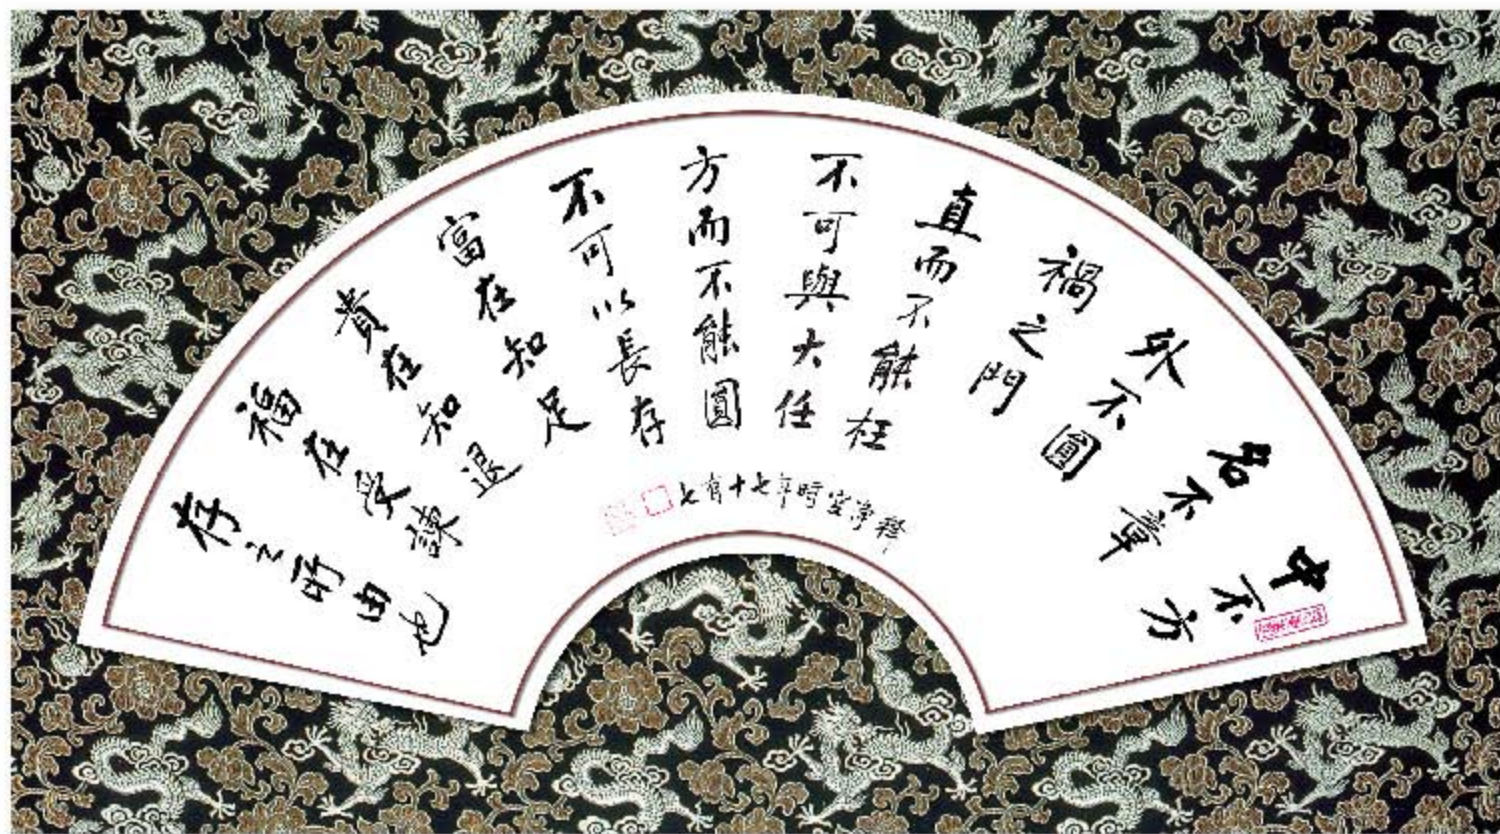 中不方
名不章
外不圓
禍之門
直而不能枉
不可與大任
方而不能圓
不可以長存
富在知足
貴在知退
福在受諫
存之所由也
釋淨空時年七十有七